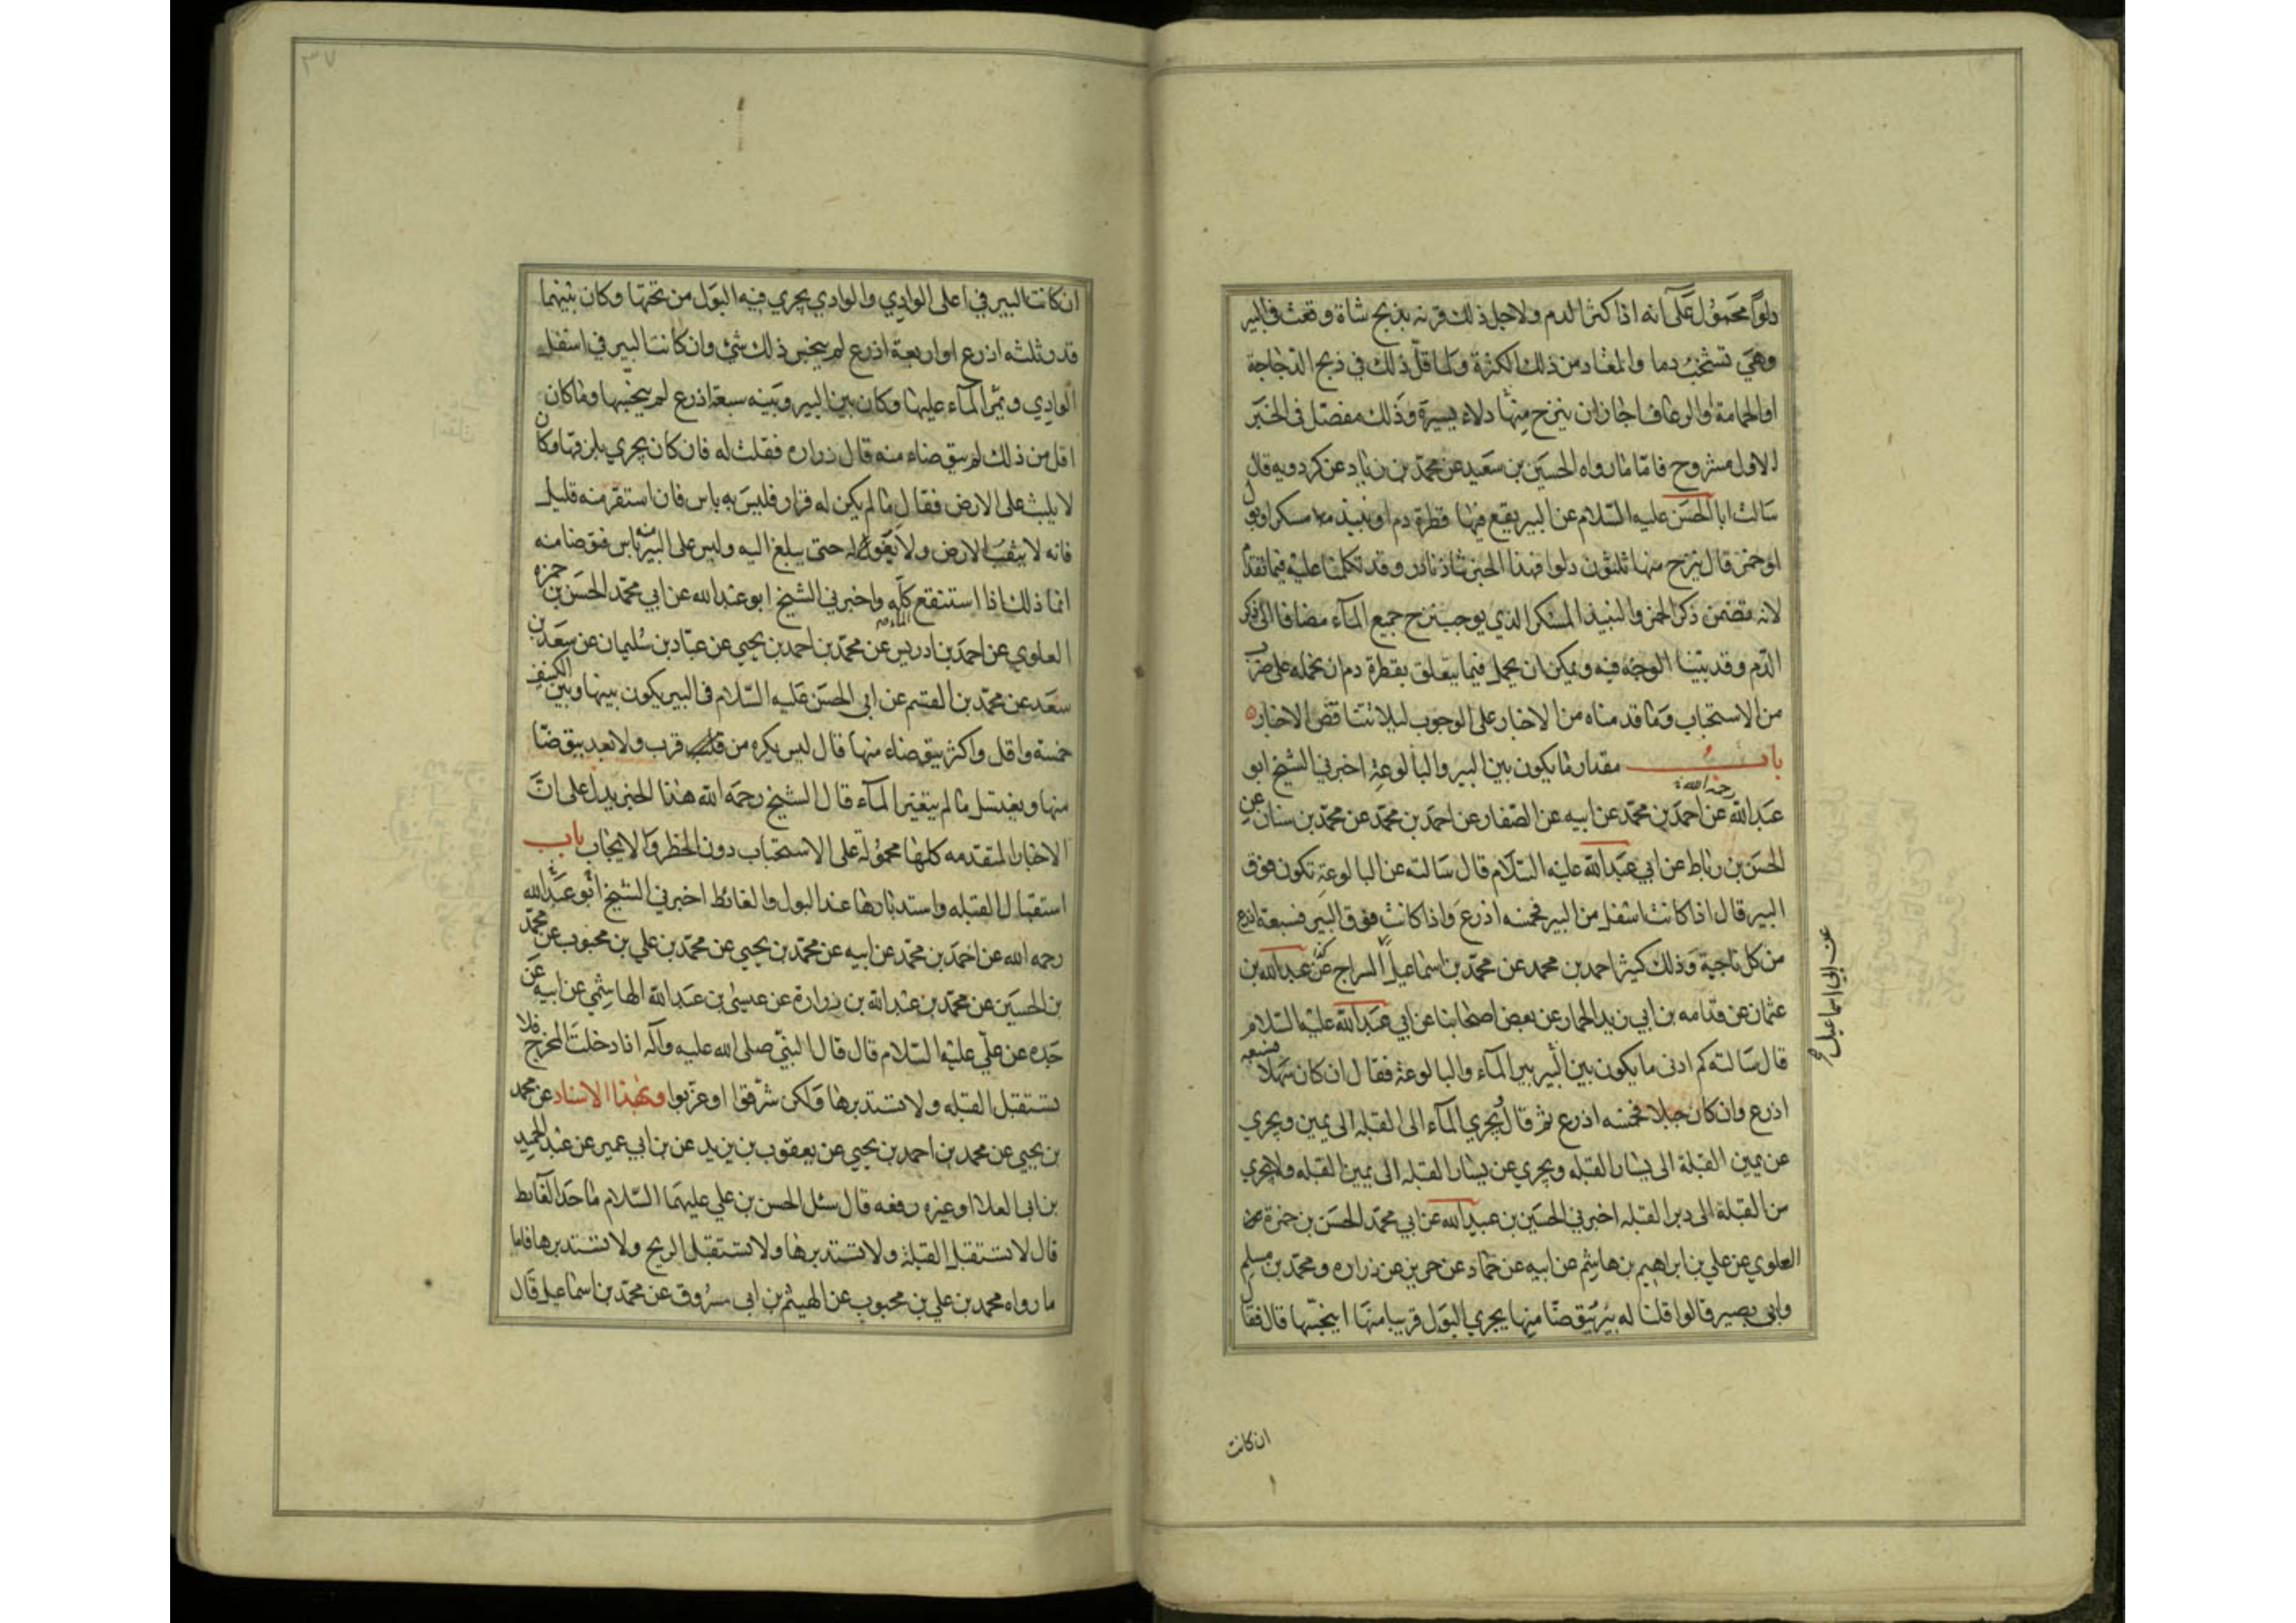 دلوًا محمول على انه اذا كثر الدم ولاجل ذلك قرنه بذبح شاة وقعت في البير
وهي تشخب دما والمعتاد من ذلك الكثرة ولما قل ذلك في ذبح الدجاجة
او الحمامة او الرعاف اجاز ان ينزح منها دلاء يسيرة وذلك مفصل في الخبر
الاول مشروح فاما ما رواه الحسين بن سعيد عن محمد بن زياد عن كردويه قال
سالت ابا الحسن عليه السلام عن البير يقع فيها قطرة دم او نبيذ مسكر او بول
او خمر قال ينزح منها ثلثون دلوا فهذا الخبر شاذ نادر وقد تكلمنا عليه فيما تقدم
لانه تضمن ذكر الخمر والنبيذ المسكر الذي يوجب نزح جميع المآء مضافا الى ذكر
الدم وقد بينا الوجه فيه ويمكن ان يحمل فيما يتعلق بقطرة دم ان نحمله على ضرب
من الاستحباب وما قدمناه من الاخبار على الوجوب ليلا تتناقض الاخبار
باب مقدار ما يكون بين البير والبالوعة اخبرني الشيخ ابو
رحمه الله
عبد الله عن احمد بن محمد عن ابيه عن الصفار عن احمد بن محمد عن محمد بن سنان عن
الحسن بن رباط عن ابي عبد الله عليه السلام قال سالته عن البالوعة تكون فوق
البير قال اذا كانت اسفل من البير فخمسه اذرع واذا كانت فوق البير فسبعة اذرع
من كل ناحية وذلك كثير احمد بن محمد عن محمد بن اسماعيل السراج عن عبد الله بن
عن ابي اسماعيل
عثمان عن قدامه بن ابي زيد الحمار عن بعض اصحابنا عن ابي عبد الله عليه السلام
قال سالته كم ادنى ما يكون بين البير بير المآء والبالوعة فقال ان كان سهلا فسبعه
اذرع وان كان جبلا فخمسه اذرع ثم قال يجري المآء الى القبلة الى يمين ويجري
عن يمين القبلة الى يسار القبله ويجري عن يسار القبله الى يمين القبله ولا يجري
من القبلة الى دبر القبله اخبرني الحسين بن عبيد الله عن ابي محمد الحسن بن حمزة
العلوي عن علي بن ابراهيم بن هاشم عن ابيه عن حماد عن حريز عن زراره ومحمد بن مسلم
وابي بصير قالوا قلنا له بير يتوضا منها يجري البول قريبا منها اينجسها قال فقال
ان كانت
٣٧
ان كانت البير في اعلى الوادي والوادي يجري فيه البول من تحتها وكان بينهما
قدر ثلثه اذرع او اربعة اذرع لم ينجس ذلك شئ وان كانت البير في اسفل
الوادي ويمر المآء عليها وكان بين البير وبينه سبعة اذرع لم ينجسها وما كان
اقل من ذلك لم يتوضاء منه قال زراره فقلت له فان كان يجري بلزقها وكان
لا يلبث على الارض فقال ما لم يكن له قرار فليس به باس فان استقر منه قليل
فانه لا يثقب الارض ولا يغوله حتى يبلغ اليه وليس على البير منه باس فتوضا منه
انما ذلك اذا استنقع كله واخبرني الشيخ ابو عبد الله عن ابي محمد الحسن بن حمزه
العلوي عن احمد بن ادريس عن محمد بن احمد بن يحيى عن عباد بن سليمان عن سعد بن
سعد عن محمد بن القسم عن ابي الحسن عليه السلام في البير يكون بينها وبين الكنيف
خمسة واقل واكثر يتوضاء منها قال ليس يكره من قرب ولا بعد يتوضا
منها ويغتسل ما لم يتغير المآء قال الشيخ رحمه الله هذا الخبر يدل على ان
الاخبار المتقدمه كلها محمولة على الاستحباب دون الحظر والايجاب باب
استقبال القبله واستدبارها عند البول والغائط اخبرني الشيخ ابو عبد الله
رحمه الله عن احمد بن محمد عن ابيه عن محمد بن يحيى عن محمد بن علي بن محبوب عن محمد
بن الحسين عن محمد بن عبد الله بن زرارة عن عيسى بن عبد الله الهاشمي عن ابيه عن
جده عن علي عليه السلام قال قال النبي صلى الله عليه وآله اذا دخلت المخرج فلا
تستقبل القبله ولا تستدبرها ولكن شرقوا او غربوا وبهذا الاسناد عن محمد
بن يحيى عن محمد بن احمد بن يحيى عن يعقوب بن يزيد عن بن ابي عمير عن عبد الحميد
بن ابي العلا او غيره رفعه قال سئل الحسن بن علي عليهما السلام ما حد الغائط
قال لا تستقبل القبلة ولا تستدبرها ولا تستقبل الريح ولا تستدبرها فاما
ما رواه محمد بن علي بن محبوب عن الهيثم بن ابي مسروق عن محمد بن اسماعيل قال